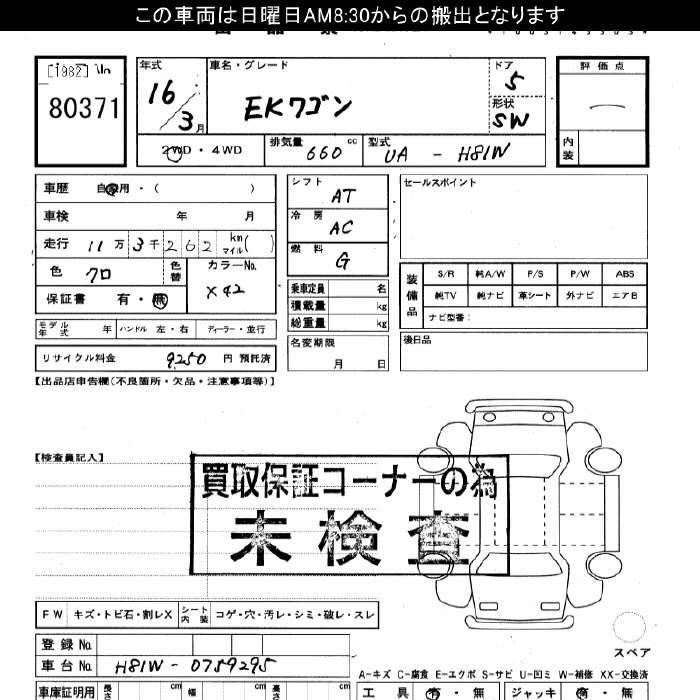 この車両は日曜日AM8:30からの搬出となります
[1982]
80371
年式 16/3月
車名・グレード EKワゴン
ドア 5
形状 SW
評価点
内装
2WD・4WD
排気量 660 cc
型式 UA - H81W
車歴 自家用・( )
車検 年 月
走行 11万3千262 km マイル( )
色 クロ 色替
カラーNo. X42
保証書 有・無
シフト AT
冷房 AC
燃料 G
乗車定員 名
積載量 kg
総重量 kg
名変期限
月 日
セールスポイント
装備品
S/R 純A/W P/S P/W ABS
純TV 純ナビ 革シート 外ナビ エアB
ナビ型番:
後日品
モデル年式 年 ハンドル 左・右 ディーラー・並行
リサイクル料金 9250 円 預託済
【出品店申告欄(不良箇所・欠品・注意事項等)】
【検査員記入】
買取保証コーナーの為
未検査
FW キズ・トビ石・割レX シート内装 コゲ・穴・汚レ・シミ・破レ・スレ
スペア
登録No.
車台No. H81W-0759295
A-キズ C-腐食 E-エクボ S-サビ U-凹ミ W-補修 XX-交換済
車庫証明用 長さ cm 幅 cm 高さ cm
工具 有・無 ジャッキ 有・無